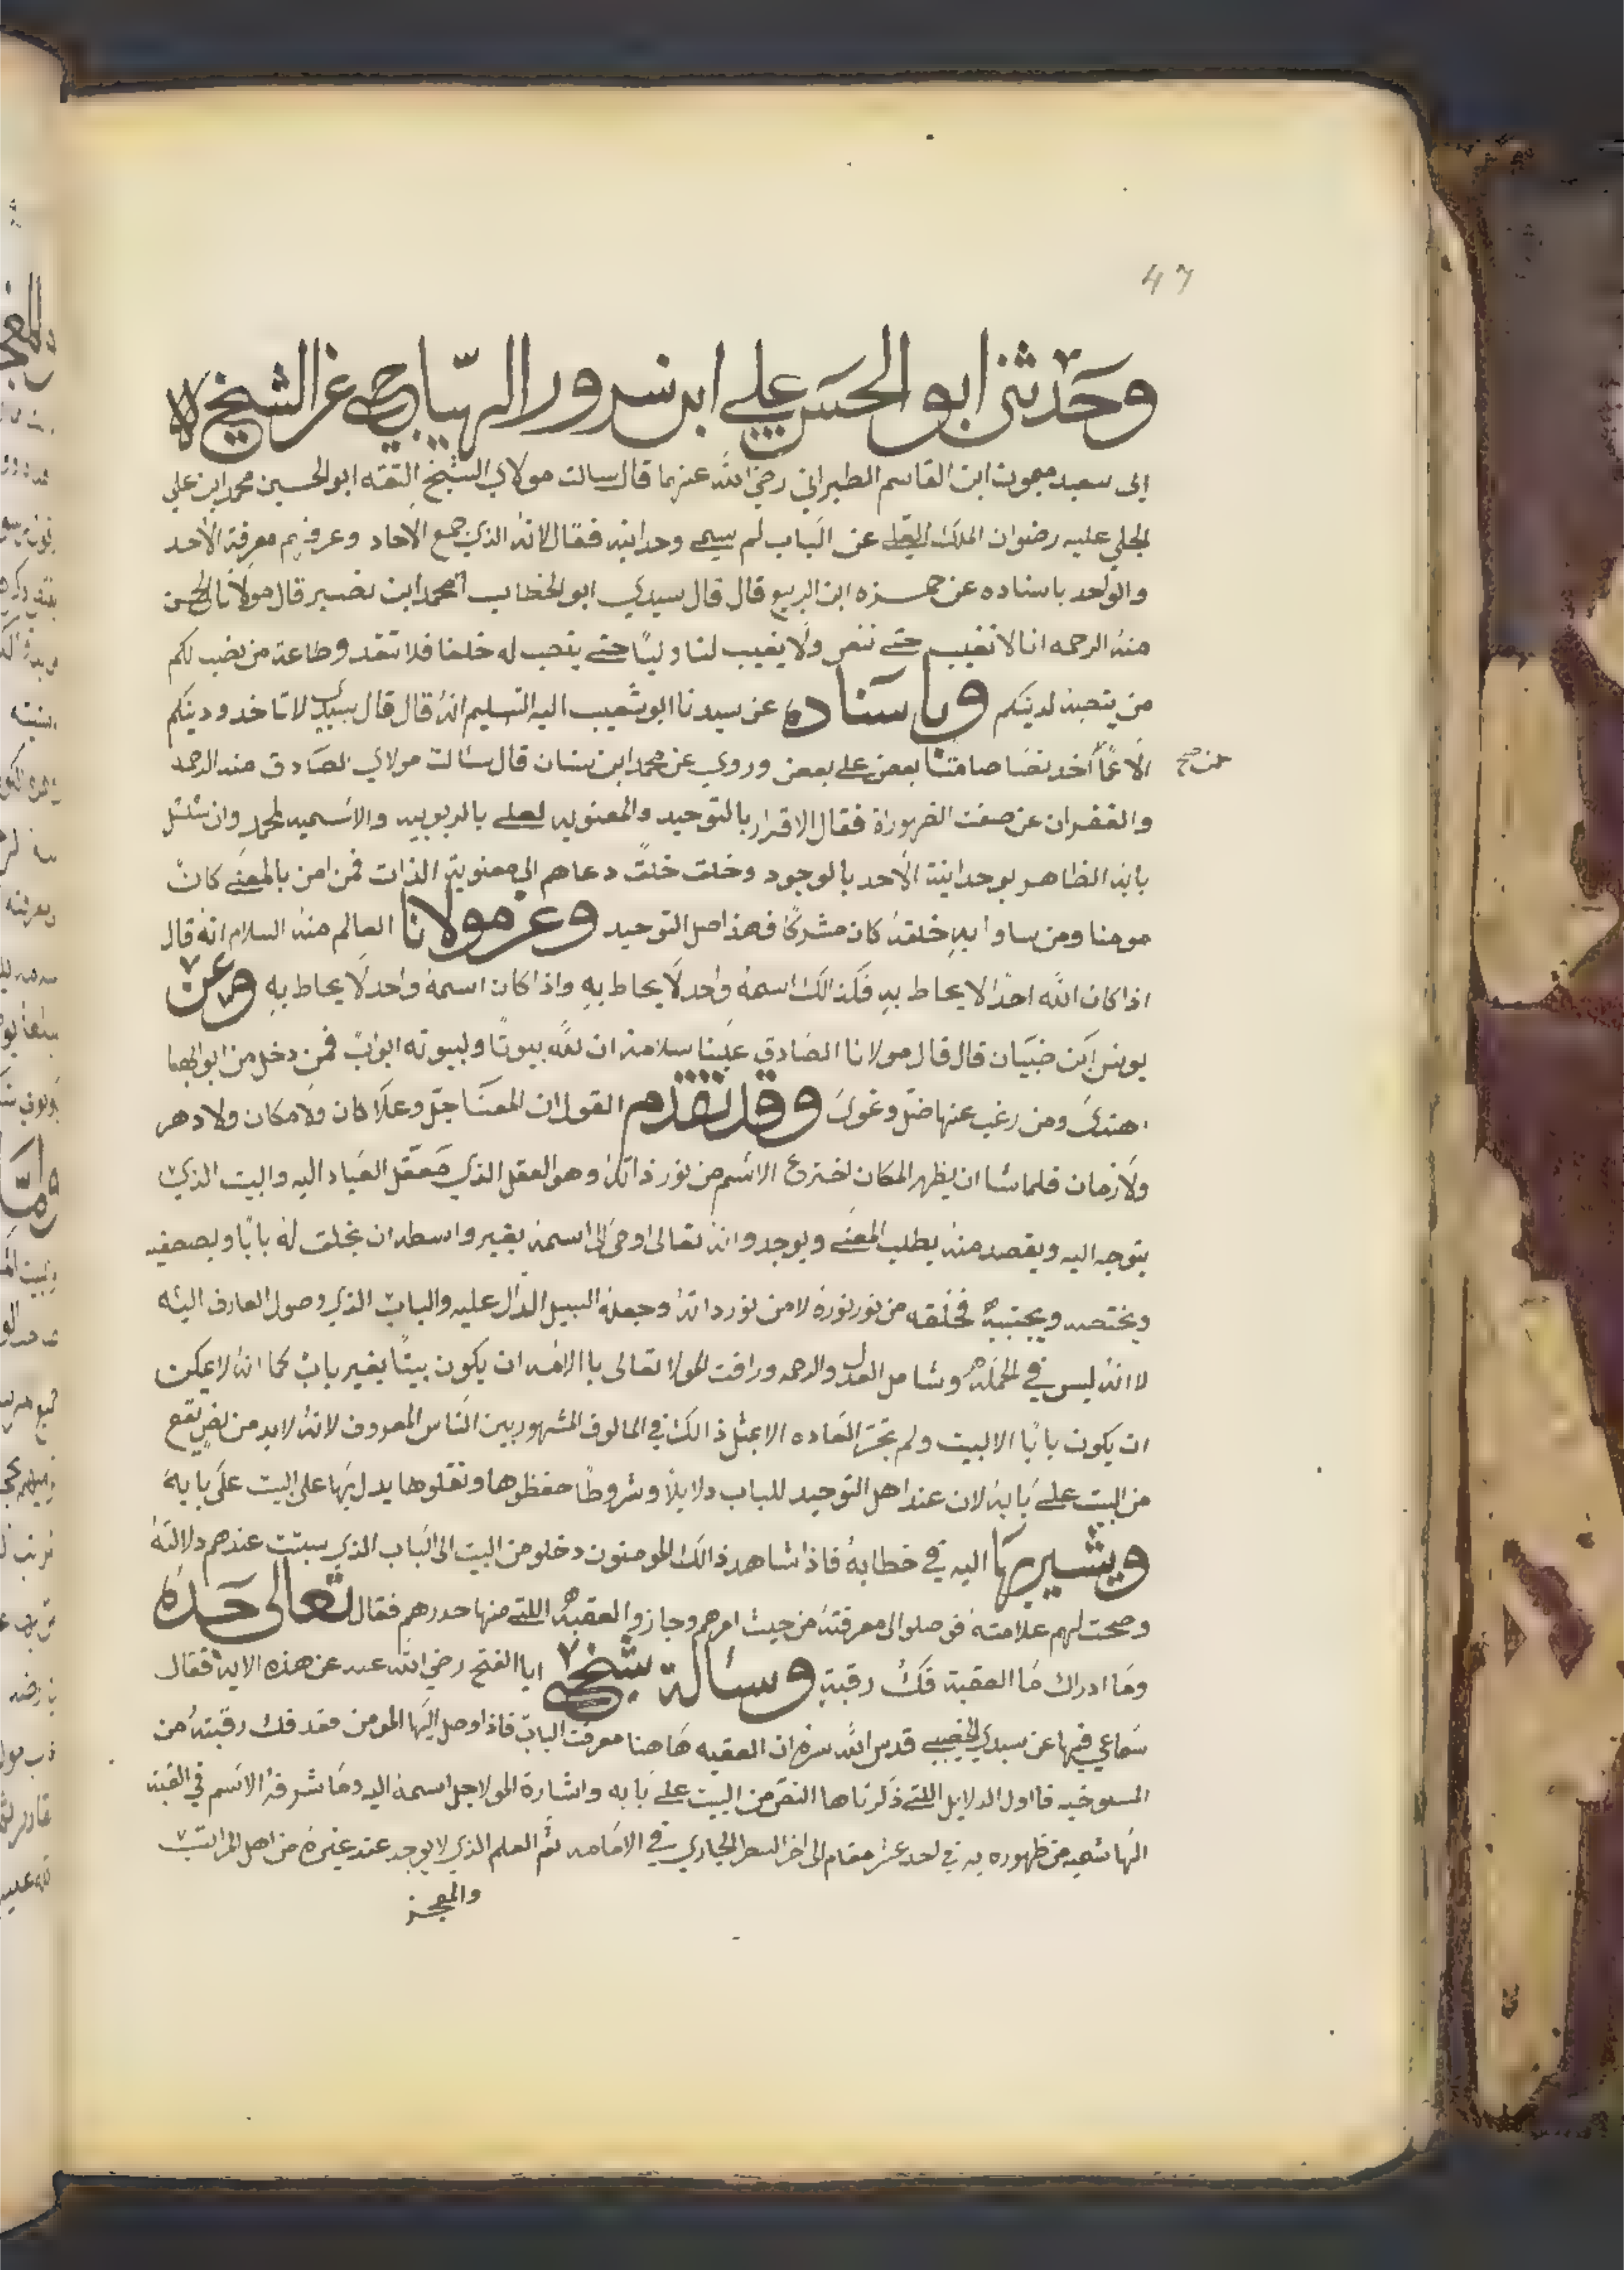 47
وحدثني ابو الحسن علي ابن سرور الهياجي عن الشيخ لا
إلى سعيد ميمون ابن القاسم الطبراني رضي الله عنهما قال سالت مولاي الشيخ الثقه ابو الحسين محمد ابن علي
الجلي عليه رضوان الملك العلي عن الباب لم سمي وحدانيه فقال لانه الذي جمع الاحاد وعرفهم معرفة الاحد
والواحد باسناده عن حمزه ابن الربيع قال قال سيدي ابو الخطاب محمد ابن نصير قال مولانا الحسن
منه الرحمه انا لا نغيب حتي ولا يغيب لنا وليًا حتي ينصب له خلفا فلا تفقدو طاعة من نصب لكم
من ينصبه لدينكم وباسناده عن سيدنا ابو شعيب اليه التسليم انه قال قال سيدي لا تاخدو دينكم
الا عمّا أخد نصًا صامتًا بعض علي بعض وروي عن محمد ابن سنان قال سالت مولاي الصادق منه الرحمه
عمن صح
والغفران عن صفت الضهوراة فقال الاقرار بالتوحيد والمعنويه لعلي بالربوبيه والاسميه لمحمد وان
بابه الظاهر بوحدانية الاحد بالوجود وخلق خلق دعاهم الى معنوية الذات فمن امن بالمعني كان
مومنا ومن ساوا بهِ خلقهُ كان مشركًا فهذا اصل التوحيد وعن مولانا العالم منه السلام انه قال
اذا كان الله احدًا لا يحاط بهِ فكذالك اسمهُ واحد لا يحاط بهِ واذا كان اسمهُ واحد لا يحاط بهِ وعن
يونس ابن ضبيان قال قال مولانا الصادق علينا سلامه ان لله بيوتًا ولبيوته ابواب فمن دخل من ابوابها
اهتدى ومن رغب عنها ضل وغوى وقد تقدم القول ان المعنا جل وعلا كان ولا مكان ولا دهر
ولا زمان فلما شا ان يظهر المكان اخترع الاسم من نور ذاته وهو العقل الذي العباد اليه والبيت الذي
يتوجه اليه ويقصد منه يطلب المعني ويوجد وانه تعالى اوحى الى اسمه بغير واسطه ان يخلق له بابًا ويصطفيه
ويختصه ويجتبيه فخلقه من نور نوره لا من نور ذاته وجعله السبيل الدال عليه والباب الذي وصول العارف اليه
لا انه ليس في الحكمه وشامل العدل والرحمه ورافت المولا تعالى بالامه ان يكون بيتًا بغير باب كما انه لا يمكن
ان يكون بابًا الا لبيت ولم تجر العاده الا بمثل ذالك في المالوف المشهور بين الناس المعروف لانه لا بد من نصٍ يقع
من البيت علي بابه لان عند اهل التوحيد للباب دلايلًا وشروطًا حفظوها ونقلوها يدل بها علي البيت علي بابه
ويشير بها اليه في خطابه فاذا شاهد ذالك المومنون دخلو من البيت الى الباب الذي سبتت عندهم دلالته
وصحت لهم علامته فوصلو الى معرفتهُ من حيث امرهم وجازو العقبه اللتي منها حدرهم فقال تعالى حده
وما ادراك ما العقبة فك رقبةٍ وسالة شيخي ابا الفتح رضي الله عنه عن هذه الايه فقال
سماعي فيها عن سيدي الخصيبي قدس الله سره ان العقبه هاهنا معرفت الباب فاذا وصل اليها المومن فقد فك رقبتهُ من
المسوخيه فااول الدلايل اللتي ذكرناها النص من البيت علي بابه واشارة المولا جل اسمه اليه وما شرفهُ الاسم في القبه
الهاشميه من ظهوره به في احد عشر مقام الى اخر السطر الجاري في الامامه ثم العلم الذي لا يوجد عند غيره من اهل المراتب
والمعجز